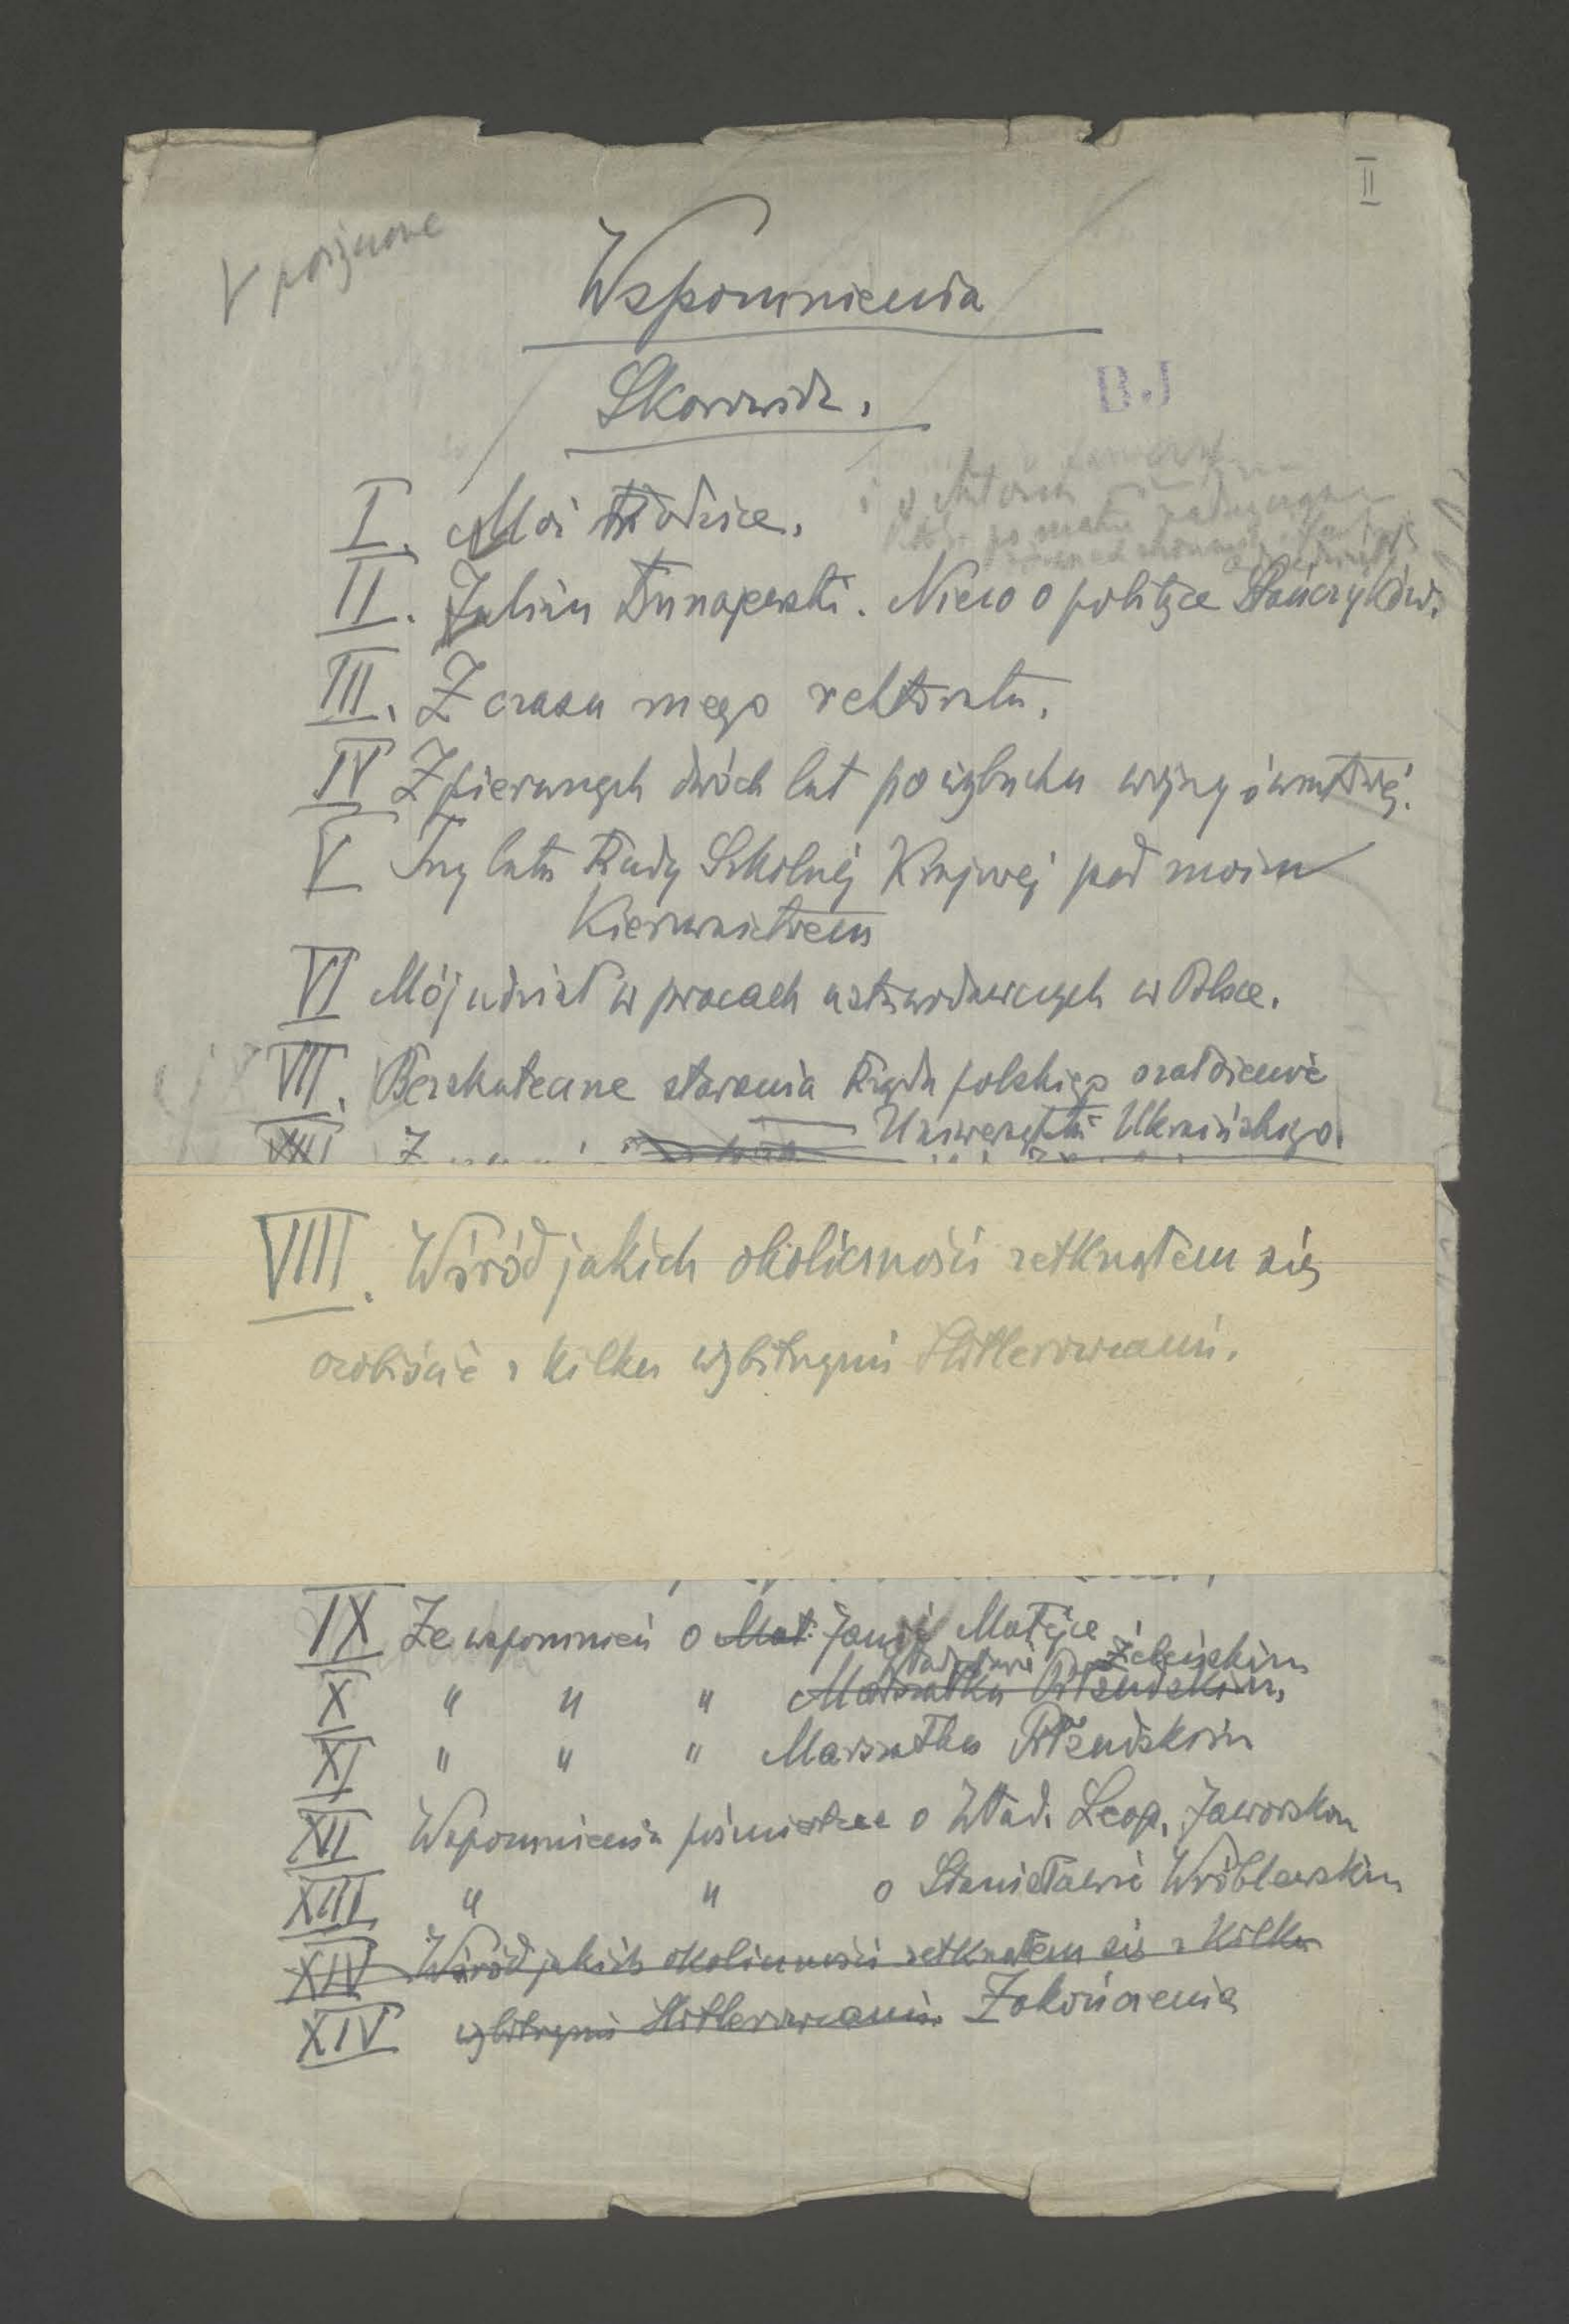 II
V pożyczone
Wspomnienia
Skorowidz.
BJ
I. Moi Rodzice.
II. Julian Dunajewski. Nieco o polityce Stańczyków.
III. Z czasu mego rektoratu.
IV Z pierwszych dwóch lat po wybuchu wojny światowej.
V Trzy lata Rady Szkolnej Krajowej pod moim
Kierownictwem
VI Mój udział w pracach ustawodawczych w Polsce.
VII. Bezskuteczne starania Rządu polskiego o założenie
Uniwersytetu Ukraińskiego.
VIII. Wśród jakich okoliczności zetknąłem się
osobiście z kilku wybitnymi Hitlerowcami.
IX Ze wspomnień o Mat. Janie Matejce
Władysławie Żeleńskim
X " " " Marszałku Piłsudskim.
XI " " " Marszałku Piłsudskim
XII Wspomnienia pośmiertne o Wład. Leop. Jaworskim
XIII " " o Stanisławie Wróblewskim
XIV Wśród jakich okoliczności zetknąłem się z kilku
XIV wybitnymi Hitlerowcami. Zakończenie